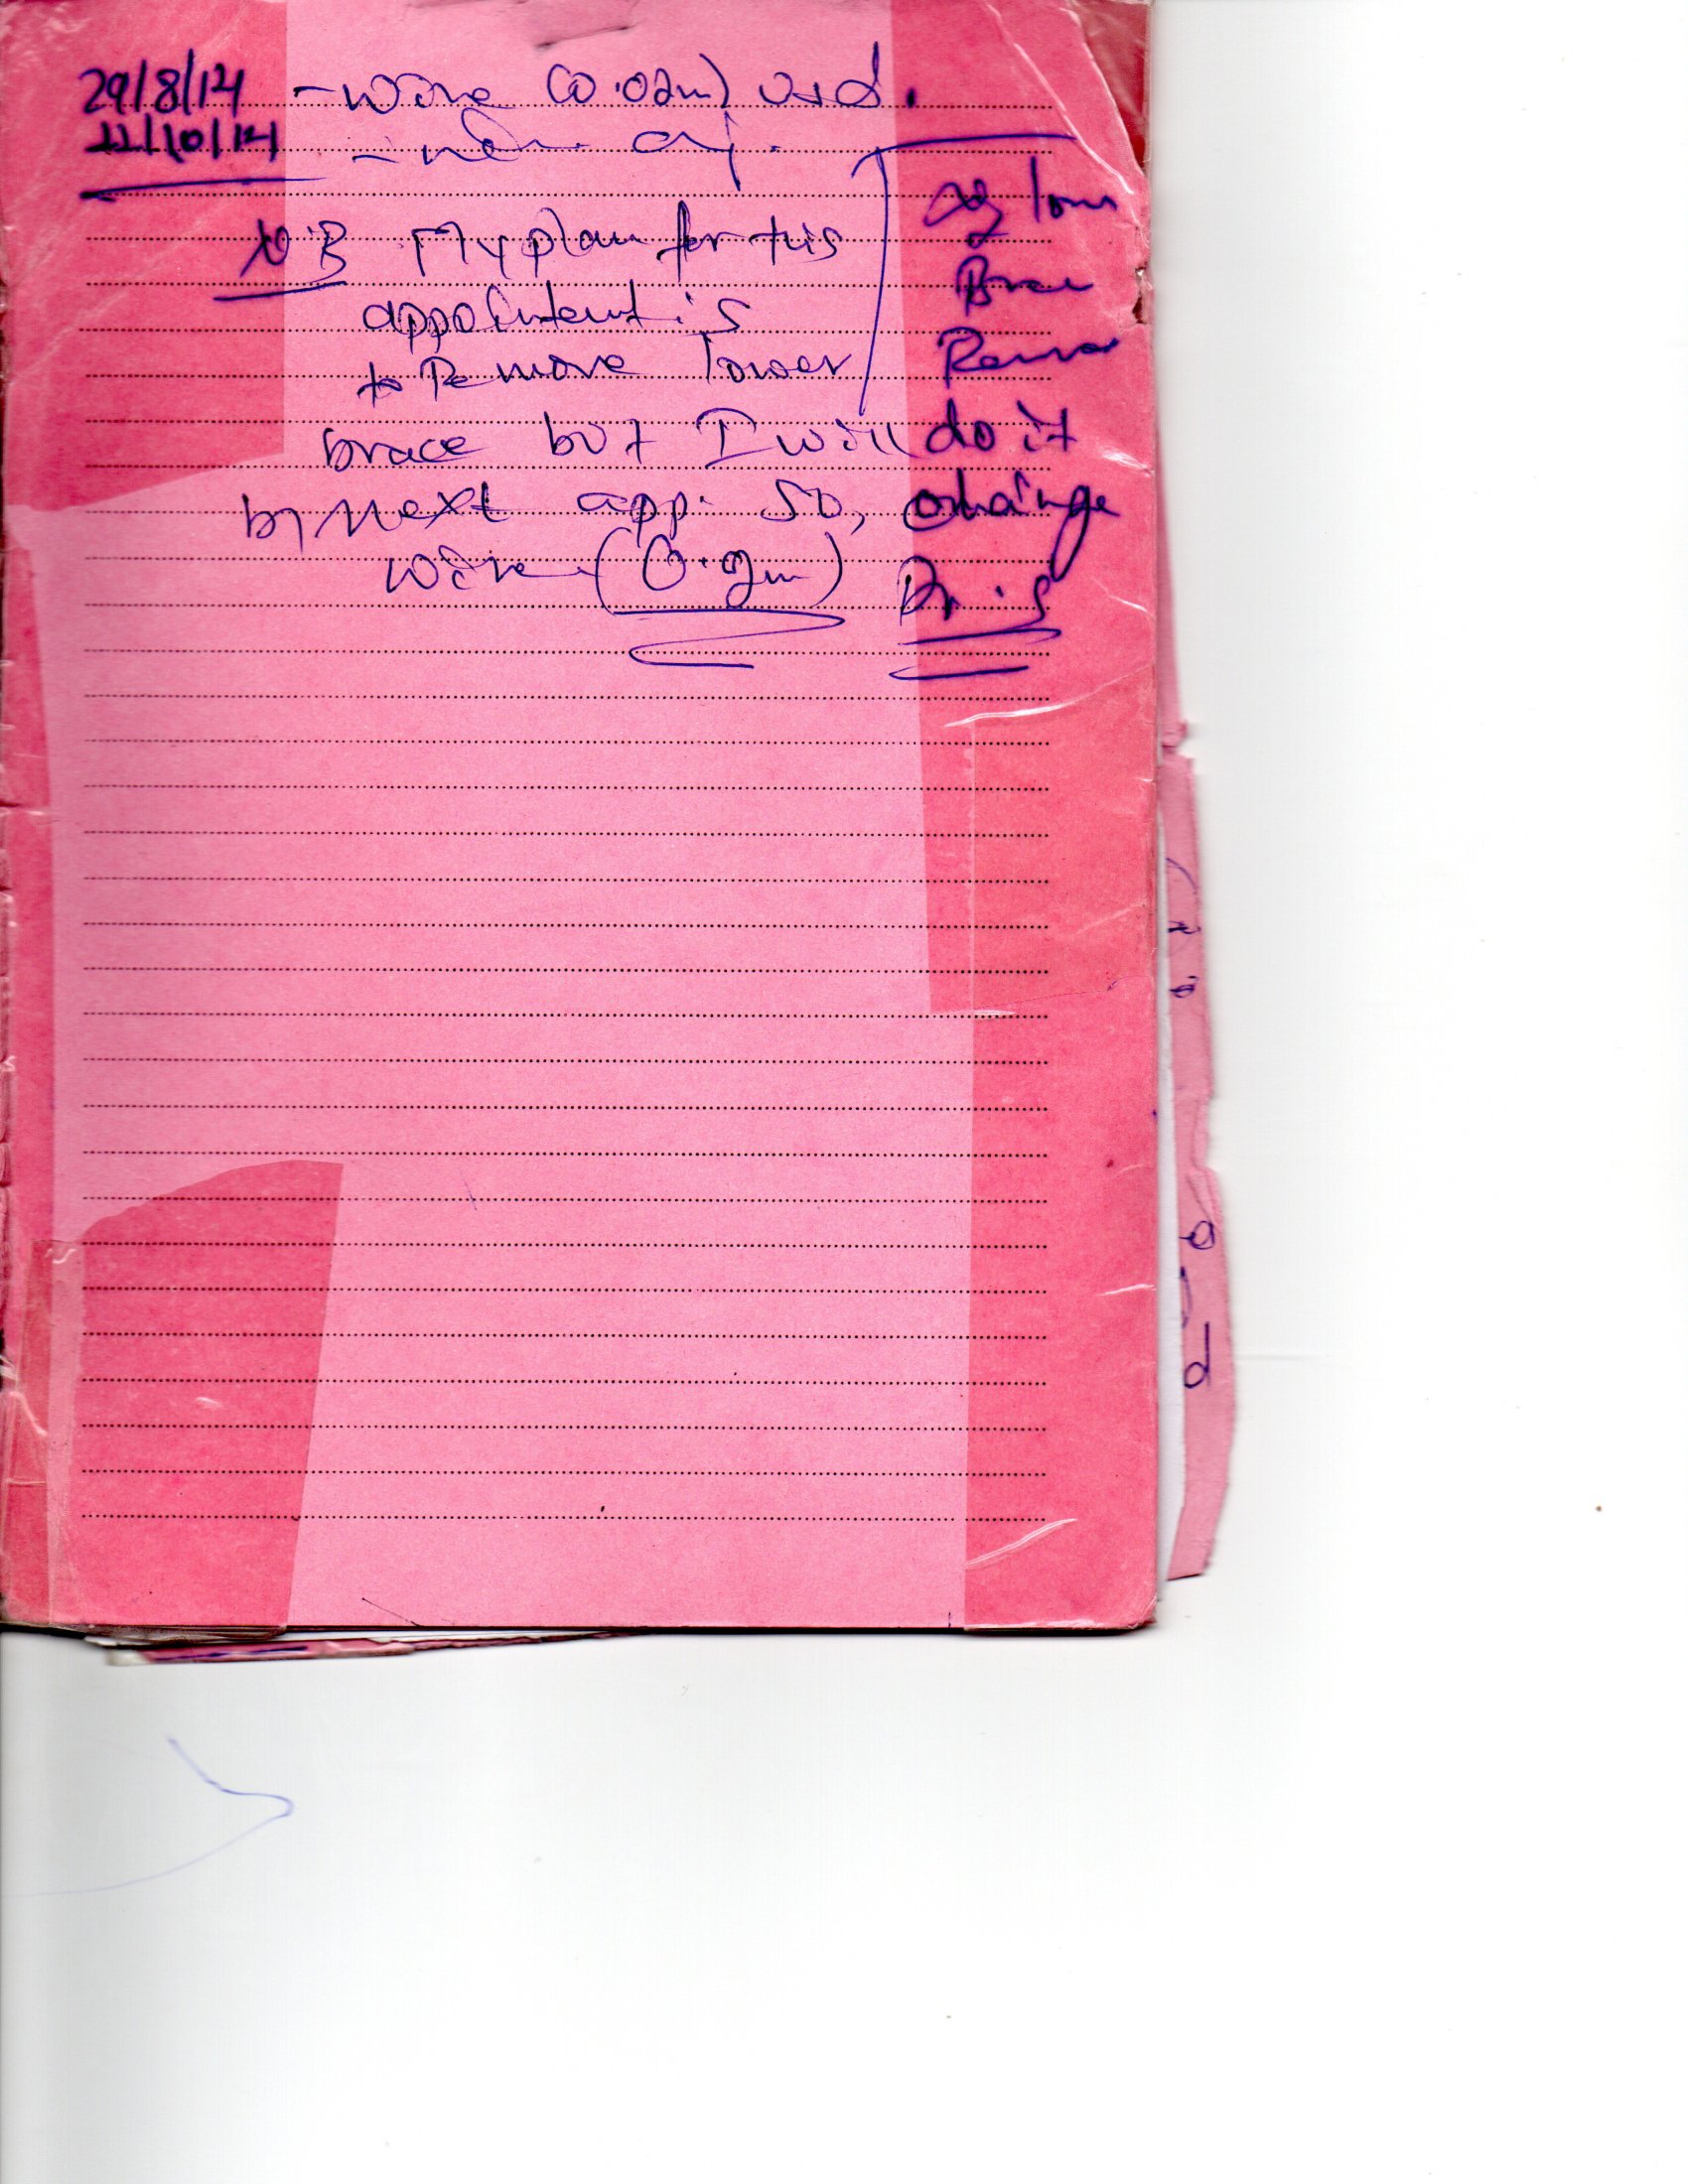 29/8/14 - Wire (0.02m) used.
22/10/14 -
N.B My plan for this
appointent is
to Remove lower
brace but I will do it
by Next app. So, change
wire (0.2m) Dr. S
Brace
Remov